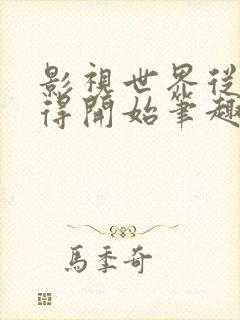 影視世界從
得開始筆趣
馬季奇